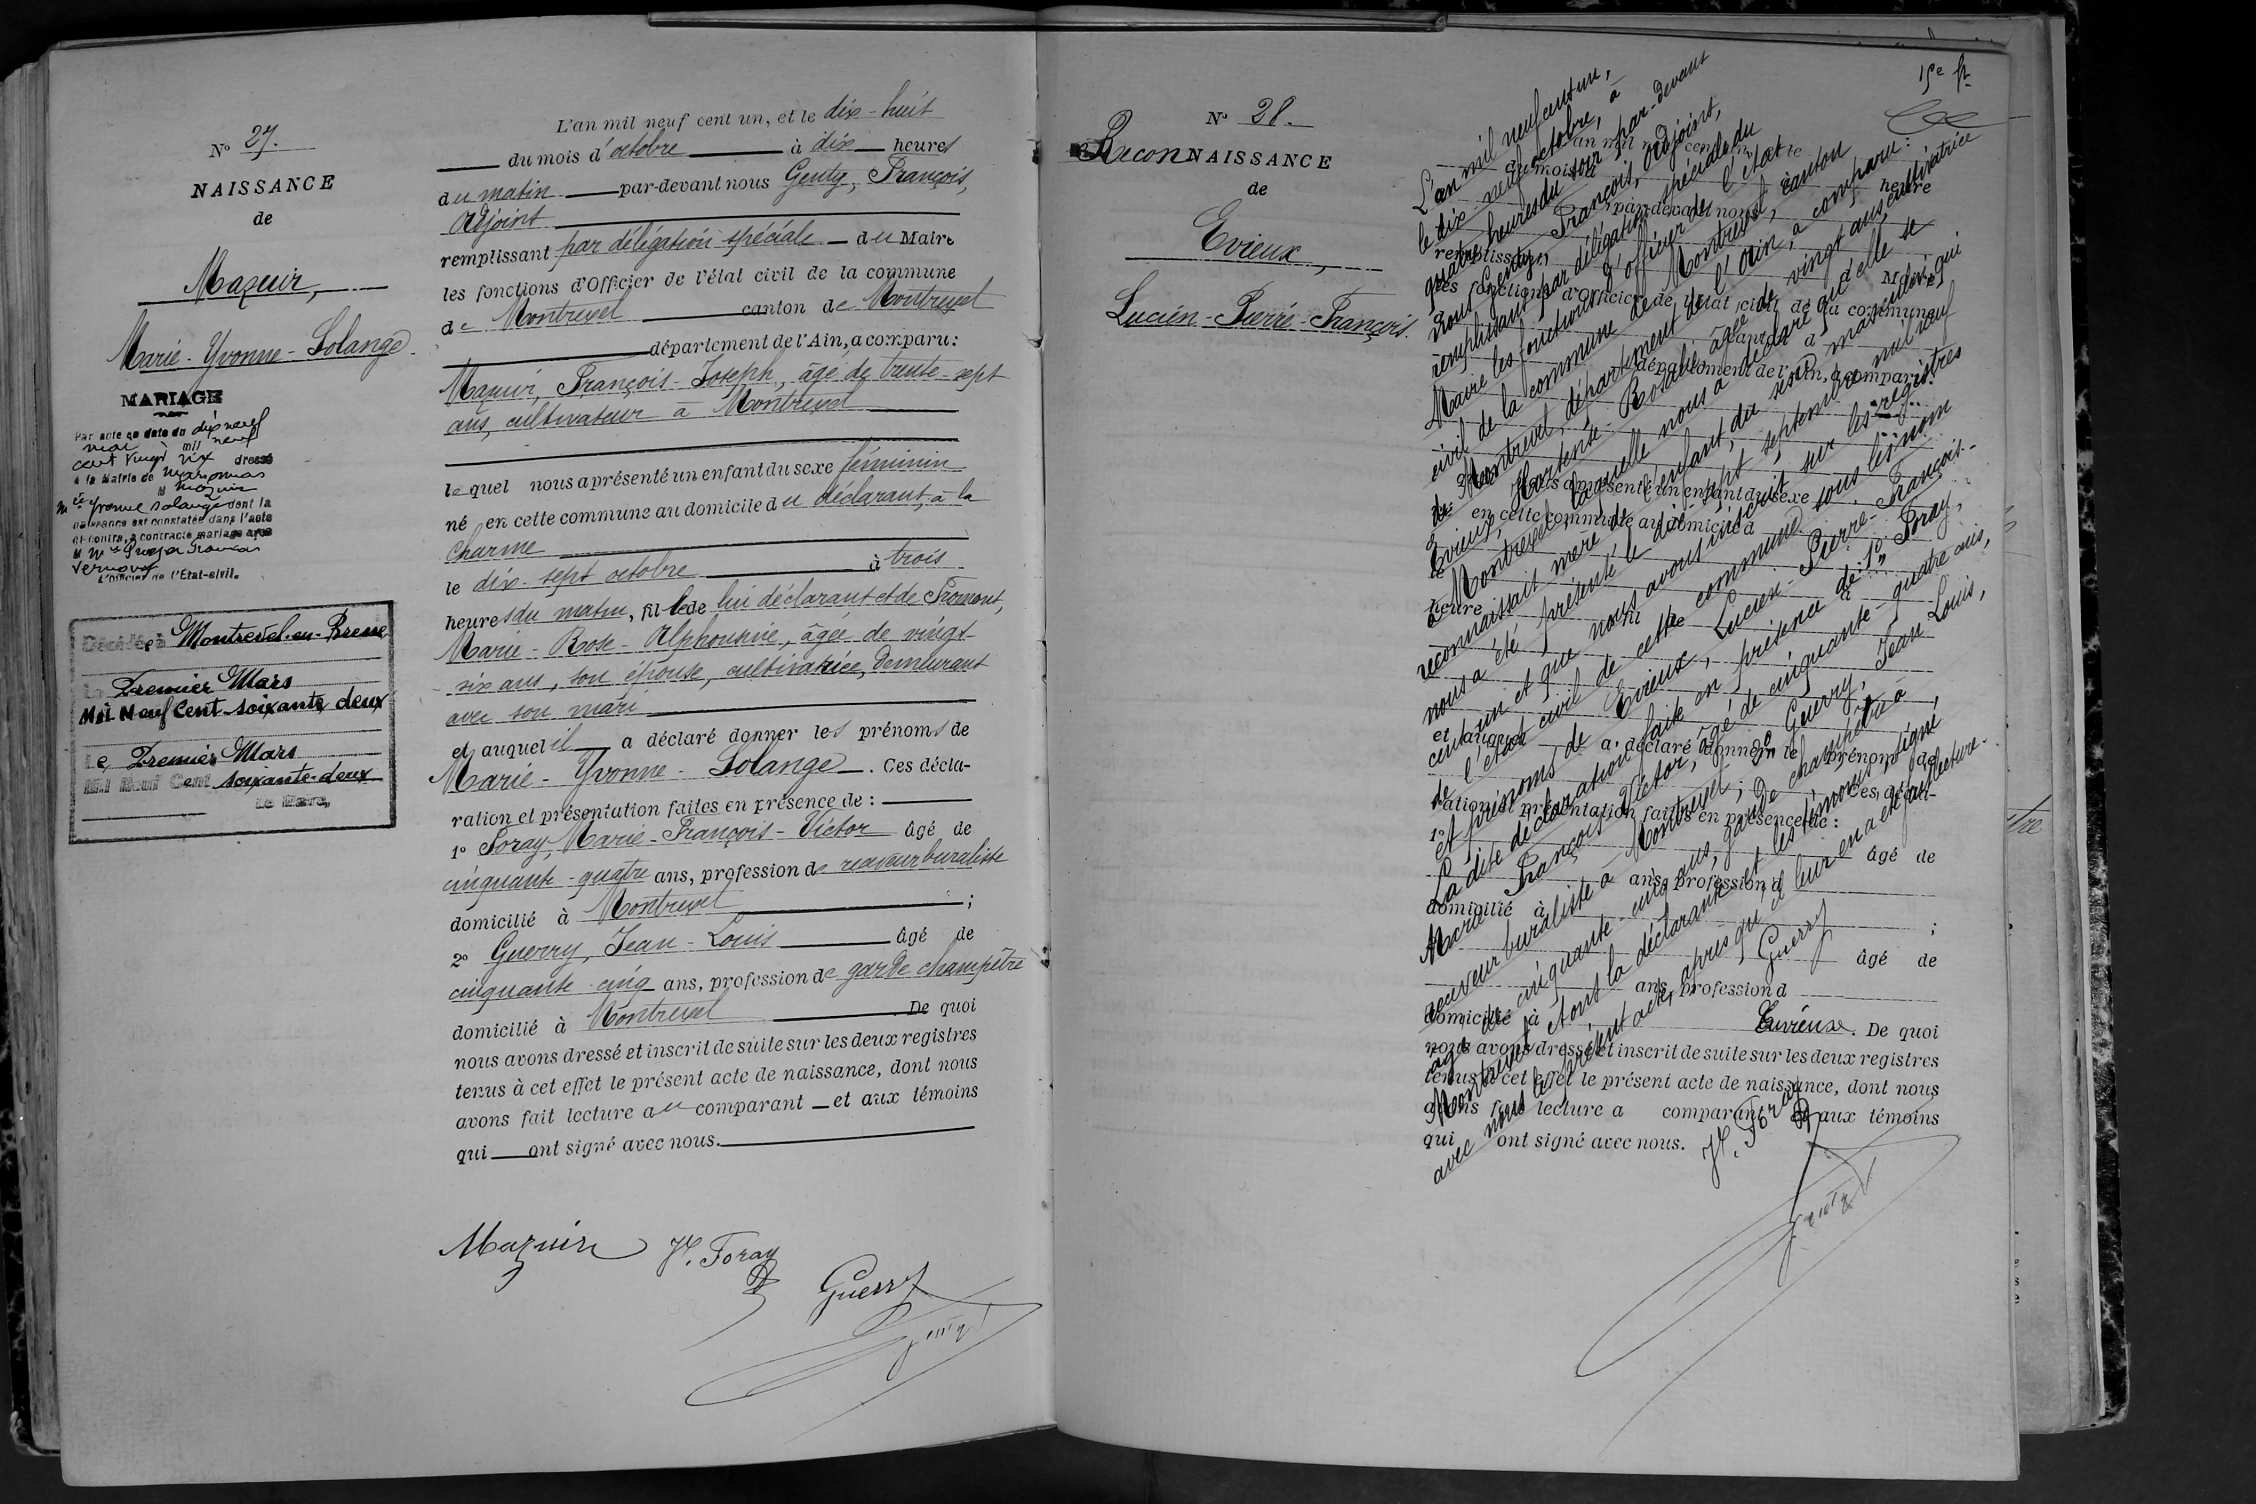 N° 27.
NAISSANCE
de
Mazuir,
Marie-Yvonne-Solange.
MARIAGE
Par acte en date du dix neuf
mai mil neuf
cent vingt six dressé
à la Mairie de Marsonnas
M Mazuir
Mie Yvonne Solange dont la
naissance est constatée dans l'acte
ci-contre, a contracté mariage avec
M
L'Officier de l'Etat-civil.
Décédée à Montrevel-en-Bresse
Le Premier Mars
Mil Neuf Cent soixante deux
Le, Premier Mars
Mil Neuf Cent soixante-deux
Le Maire,
L'an mil neuf cent un, et le dix-huit
du mois d'octobre à dix heures
du matin par-devant nous Genty, François,
Adjoint
remplissant par délégation spéciale du Maire
les fonctions d'Officier de l'état civil de la commune
de Montrevel canton de Montrevel
département de l'Ain, a comparu:
Mazuir, François-Joseph, âgé de trente-sept
ans, cultivateur à Montrevel
lequel nous a présenté un enfant du sexe féminin
né en cette commune au domicile du déclarant, à la
Charme
le dix-sept octobre à trois
heures du matin, fille de lui déclarant et de Fromont,
Marie-Rose-Alphonsine, âgée de vingt-
six ans, son épouse, cultivatrice, demeurant
avec son mari
et auquel il a déclaré donner les prénoms de
Marie-Yvonne-Solange. Ces décla-
ration et présentation faites en présence de :
1° Foray, Marie-François-Victor âgé de
cinquante-quatre ans, profession de receveur buraliste
domicilié à Montrevel ;
2° Guerry, Jean-Louis âgé de
cinquante-cinq ans, profession de garde champêtre
domicilié à Montrevel De quoi
nous avons dressé et inscrit de suite sur les deux registres
tenus à cet effet le présent acte de naissance, dont nous
avons fait lecture au comparant et aux témoins
qui ont signé avec nous.
Mazuir V. Foray
Guerry
Genty
N° 28.
ReconNAISSANCE
de
Evieux,
Lucien-Pierre-François.
L'an mil neuf cent un,
le dix-neuf octobre, à
quatre heures du soir par-devant
nous Genty, François, Adjoint,
remplissant par délégation spéciale du
Maire les fonctions d'officier de l'état
civil de la commune de Montrevel, canton
de Montrevel, département de l'Ain, a comparu :
Evieux, Hortense-Rosalie, âgée de vingt ans, cultivatrice
à Montrevel, laquelle nous a déclaré qu'elle se
reconnaissait mère de l'enfant, du sexe masculin, qui
nous a été présenté le dix-sept septembre mil neuf
cent un et que nous avons inscrit sur les registres
de l'état civil de cette commune sous les nom
et prénoms de Evieux, Lucien-Pierre-François.
La dite déclaration faite en présence de: 1° Foray,
Marie François Victor, âgé de cinquante-quatre ans,
receveur buraliste à Montrevel; 2° Guerry, Jean Louis,
âgé de cinquante-cinq ans, garde champêtre à
Montrevel. Et ont la déclarante et les témoins signé
avec nous le présent acte, après qu'il leur en a été fait lecture.
an mil neuf cent un, et le
du mois d
heure
par-devant nous
remplissant
Maire
les fonctions d'Officier de l'état civil de la commune
département de l'Ain, a comparu:
nous a présenté un enfant du sexe
né en cette commune au domicile d
le à
heure
et auquel a déclaré donner le prénom de
Ces décla-
ration et présentation faites en présence de :
1° âgé de
ans, profession d
domicilié à ;
âgé de
ans, profession d
domicilié à De quoi
nous avons dressé et inscrit de suite sur les deux registres
tenus à cet effet le présent acte de naissance, dont nous
avons fait lecture a comparant et aux témoins
qui ont signé avec nous.
Guerry
Evieux
V. Foray
Genty